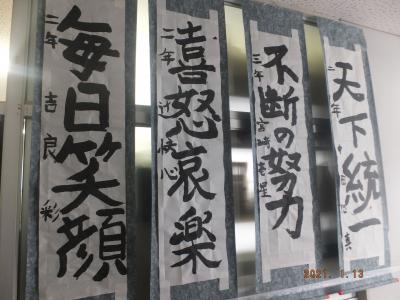 天下統一
二年
不断の努力
三年 宮崎
喜怒哀楽
二年 辻 心
毎日笑顔
二年 吉良 彩
2021. 1.13